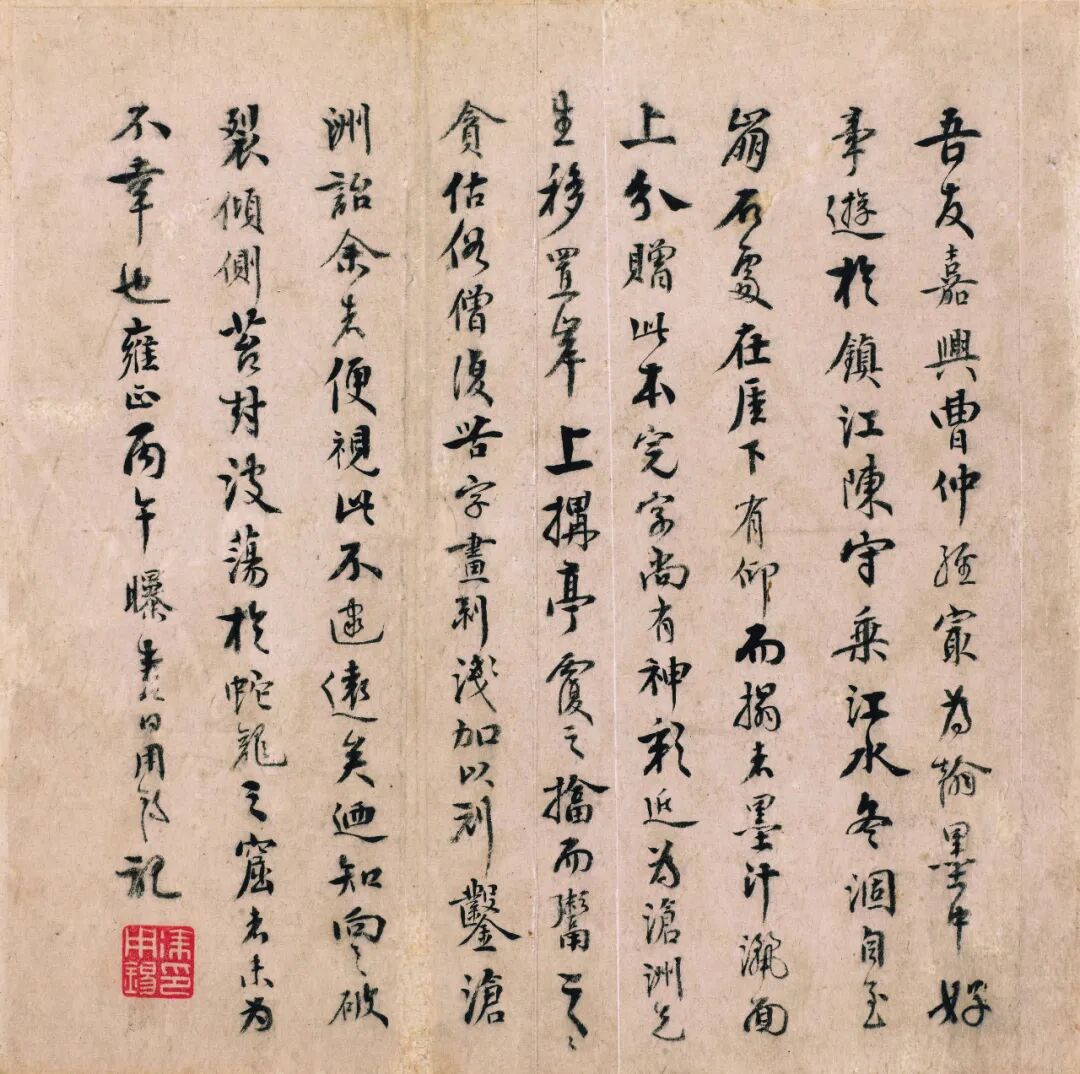 吾友嘉興曹仲經㝡為翰墨中好
事遊於鎮江陳守乗江水冬涸自至
崩石處在厓下有仰而搨者墨汁灑面
上分贈此本完字尚有神彩近為滄洲先
生移置岸上搆亭覆之搨而鬻之〻
貪估俗僧復嘗字畫刓淺加以剜鑿滄
洲詒余者便視此不逮遠矣迺知向之破
裂傾側苔封波蕩於蛇龍之窟者未為
不幸也雍正丙午曝書日用錫記
用錫